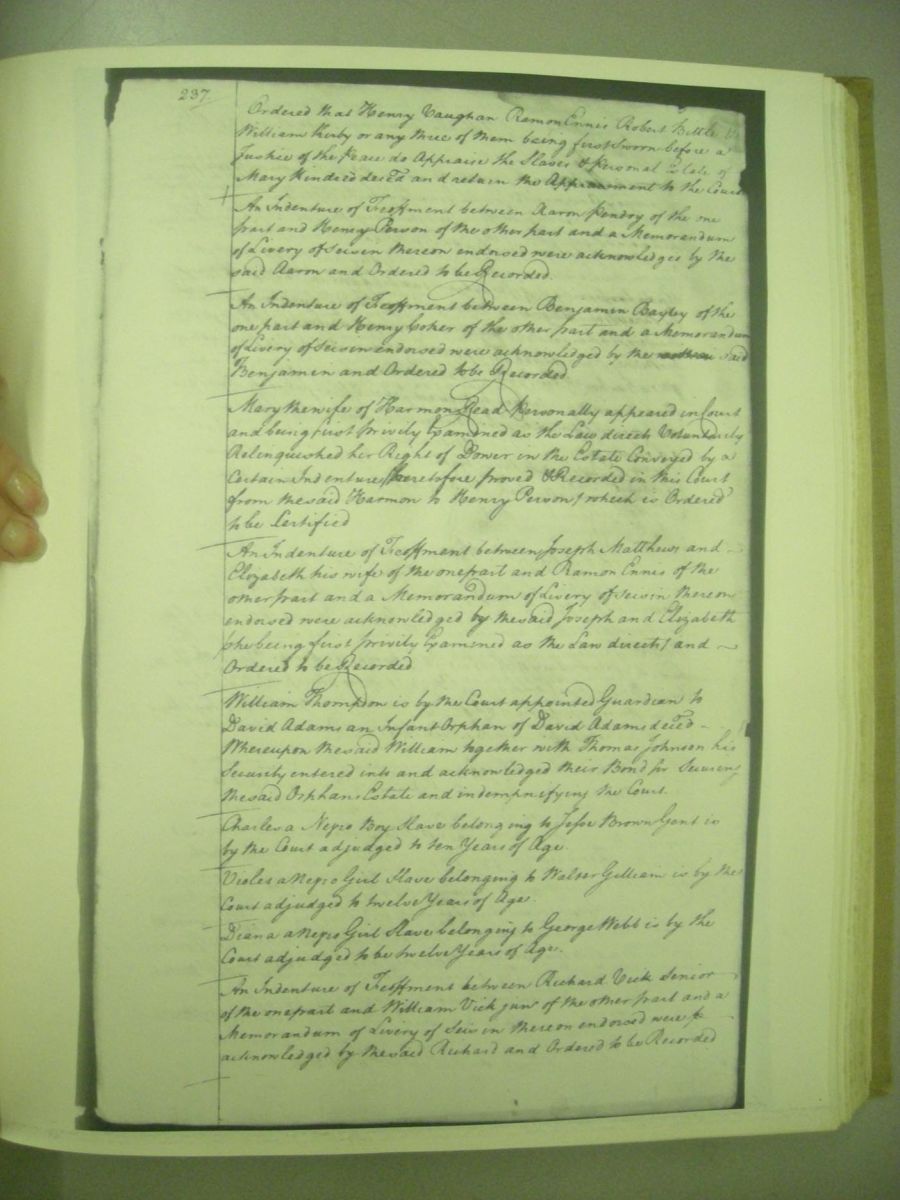 237
Ordered that Henry Vaughan Ramon Ennis Robert Bittle &
William Kirby or any three of them being first Sworn before a
Justice of the Peace do Appraise the Slaves & Personal Estate of
Mary Kindred dec'd and return the Appraisment to the Court
An Indenture of Feoffment between Aaron Pendry of the one
part and Henry Person of the other part and a Memorandum
of Livery of Seisin thereon endorsed were acknowledged by the
said Aaron and Ordered to be Recorded
An Indenture of Feoffment between Benjamin Bayley of the
one part and Henry Coker of the other part and a Memorandum
of Livery of Seisin endorsed were acknowledged by the said
Benjamin and Ordered to be Recorded
Mary the wife of Harmon Read Personally appeared in Court
and being first Privily Examined as the Law directs Voluntarily
Relinquished her Right of Dower in the Estate Conveyed by a
Certain Indenture (heretofore proved & Recorded in this Court
from the said Harmon to Henry Person) which is Ordered
to be Certified
An Indenture of Feoffment between Joseph Matthews and
Elizabeth his wife of the one part and Ramon Ennis of the
other part and a Memorandum of Livery of Seisin thereon
endorsed were acknowledged by the said Joseph and Elizabeth
(she being first privily Examined as the Law directs) and
Ordered to be Recorded
William Thompson is by the Court appointed Guardian to
David Adams an Infant Orphan of David Adams dec'd
Whereupon the said William together with Thomas Johnson his
Security entered into and acknowledged their Bond for Securing
the said Orphans Estate and indempnifying the Court.
Charles a Negro Boy Slave belonging to Jesse Brown Gent is
by the Court adjudged to ten Years of Age.
Violes a Negro Girl Slave belonging to Walter Gilliam is by the
Court adjudged to twelve Years of Age.
Diana a Negro Girl Slave belonging to George Webb is by the
Court adjudged to be twelve Years of Age.
An Indenture of Feoffment between Richard Vick Senior
of the one part and William Vick junr of the other part and a
Memorandum of Livery of Seisin thereon endorsed were
acknowledged by the said Richard and Ordered to be Recorded